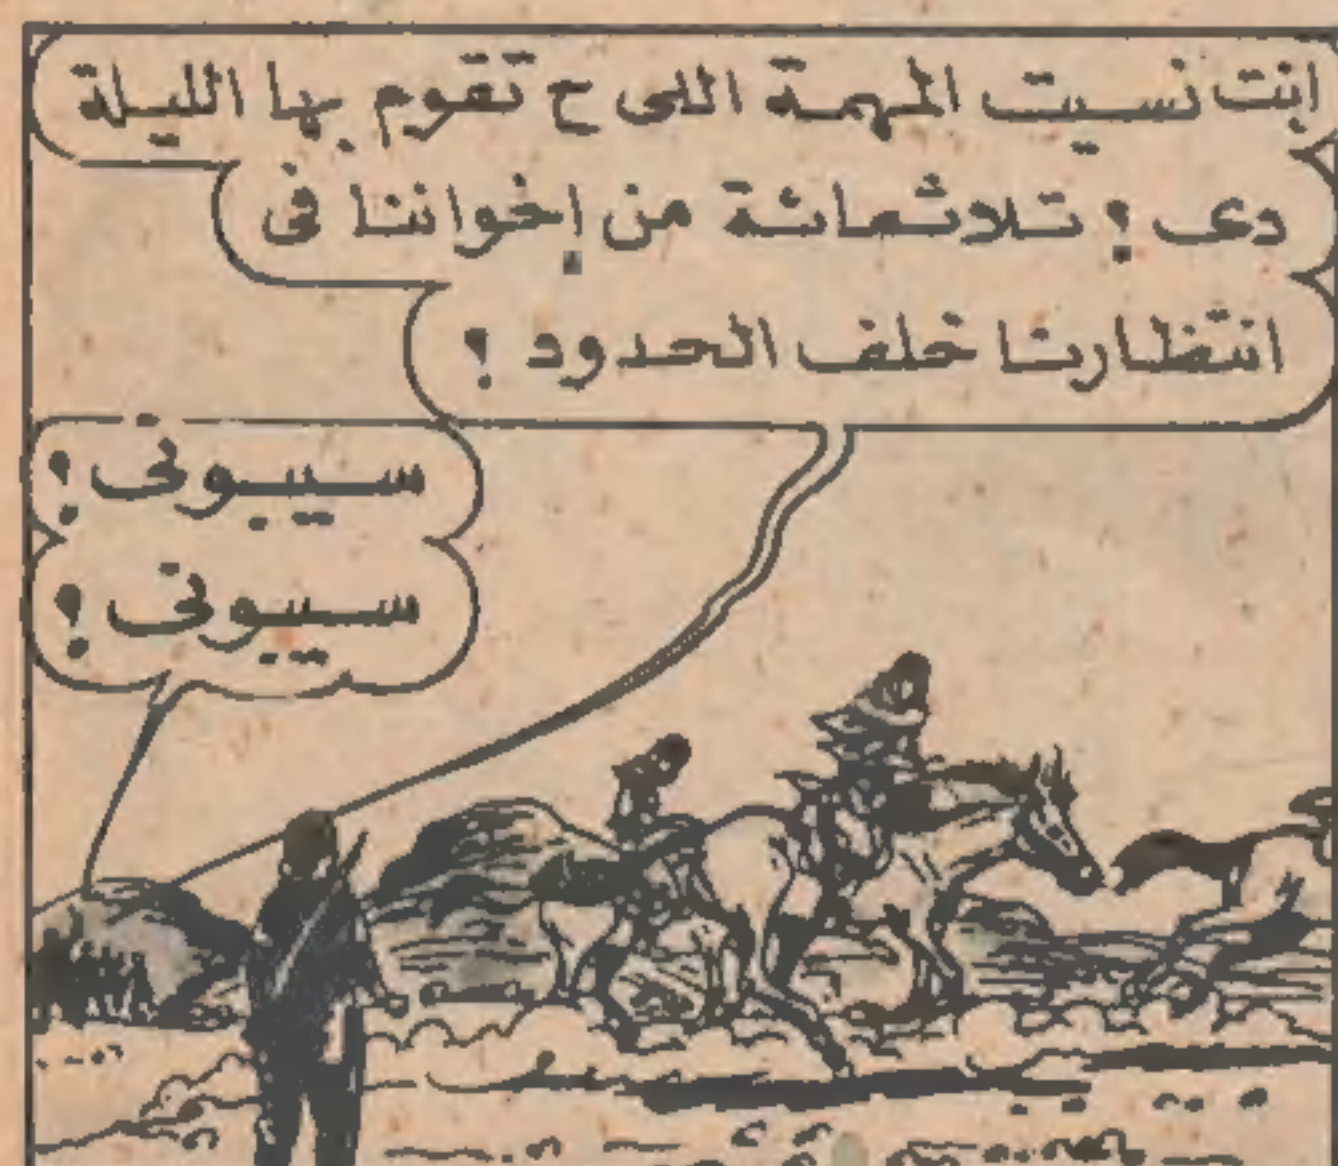 انت نسيت المهمة اللى ح تقوم بها الليلة
دى ؟ تلاثمائة من إخواننا فى
انتظارنا خلف الحدود ؟
سيبونى !
سيبونى !